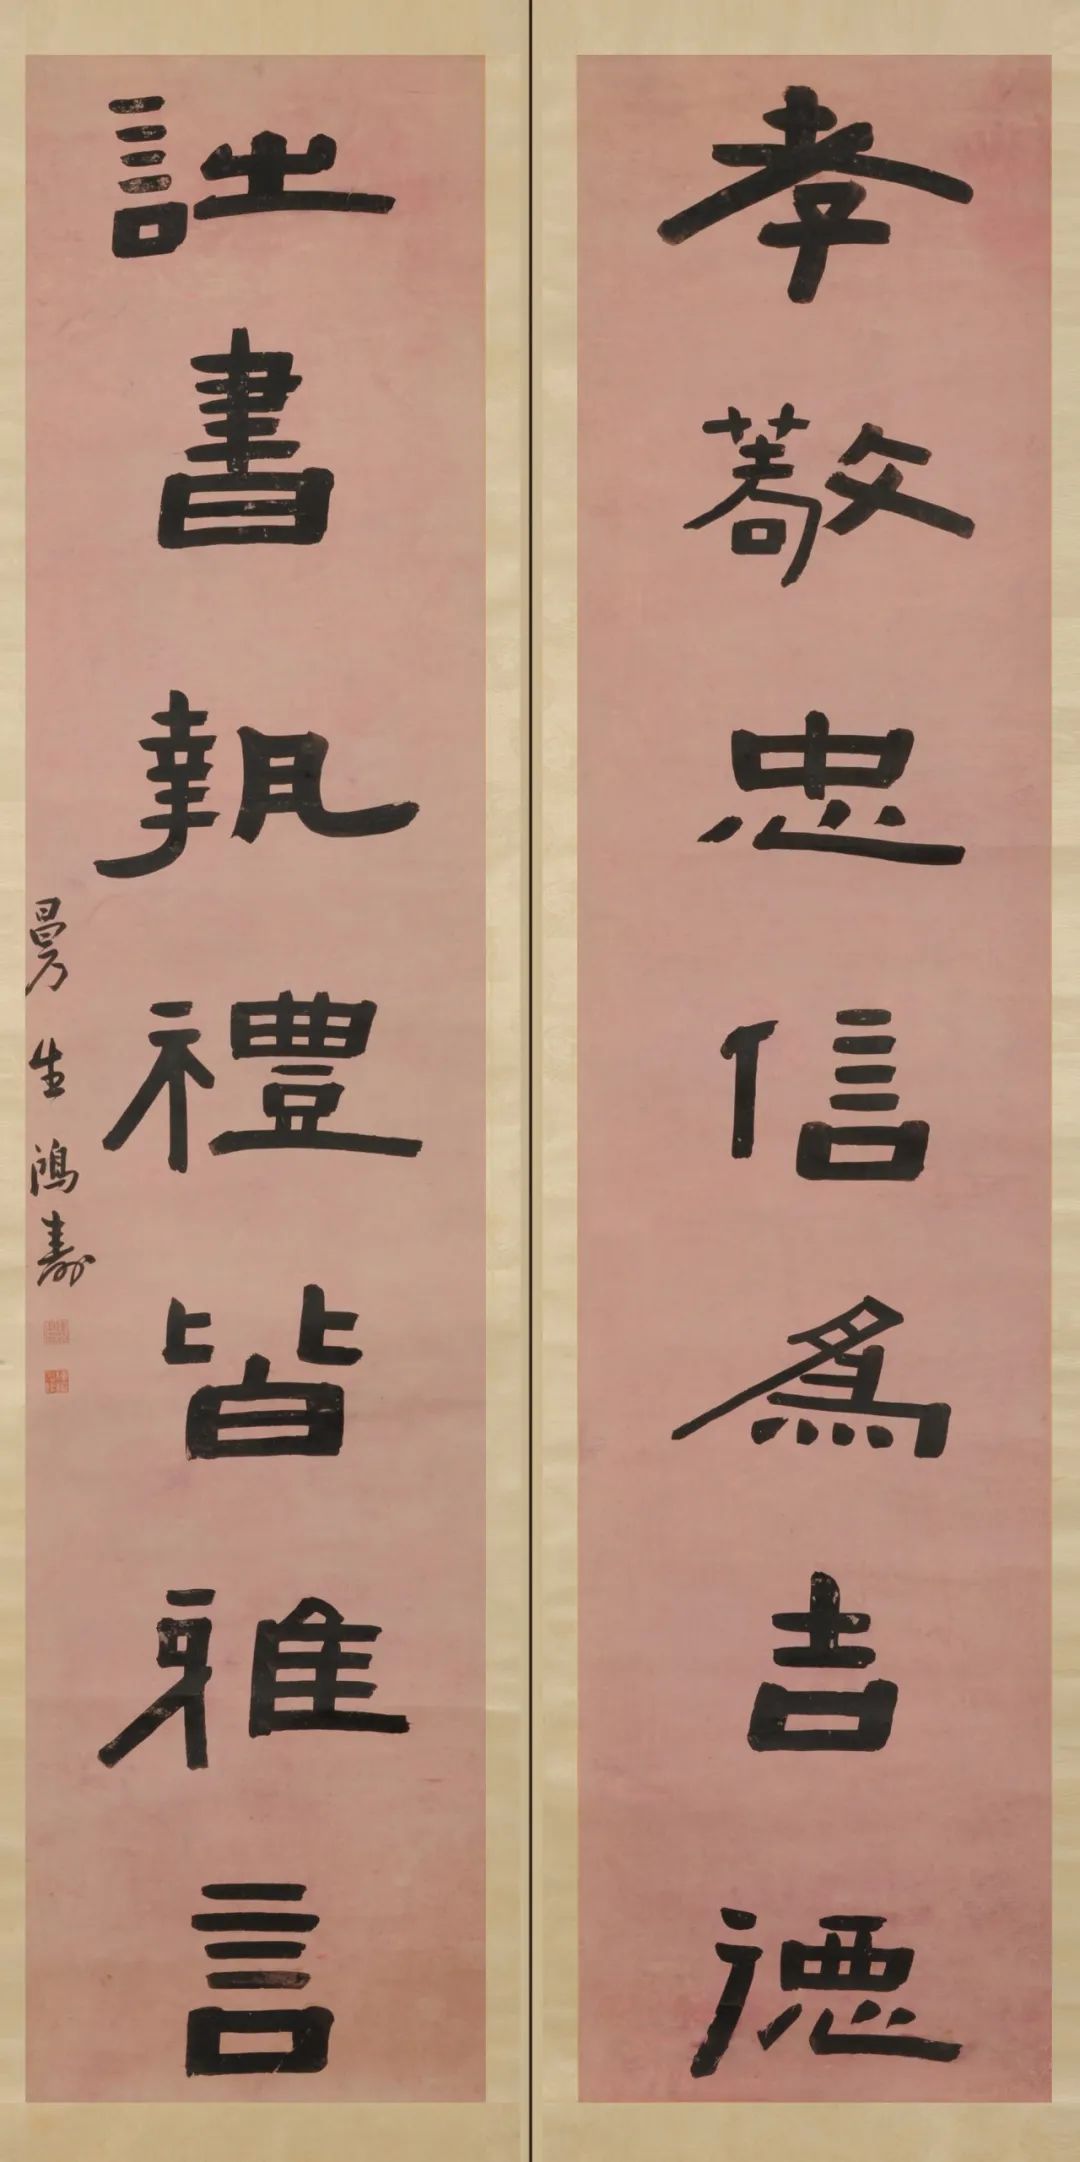 孝敬忠信為吉德
詩書執禮皆雅言
曼生鴻壽